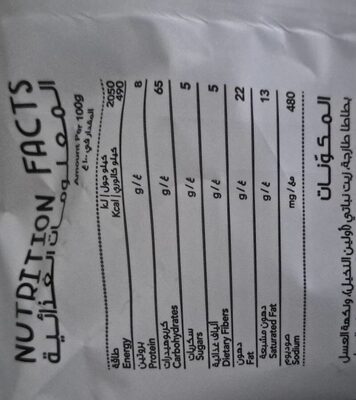 NUTRITION FACTS
المعلومات الغذائية
Amount Per 100g
المقدار في ١٠٠غ
طاقة
Energy
كيلو جول | kJ 2050
كيلو كالوري | Kcal 490
بروتين
Protein
g / غ 8
كربوهيدرات
Carbohydrates
g / غ 65
سكريات
Sugars
g / غ 5
ألياف غذائية
Dietary Fibers
g / غ 5
دهون
Fat
g / غ 22
دهون مشبعة
Saturated Fat
g / غ 13
صوديوم
Sodium
mg / مغ 480
المكوّنات
بطاطا طازجة، زيت نباتي (أولين النخيل)، ونكهة العسل